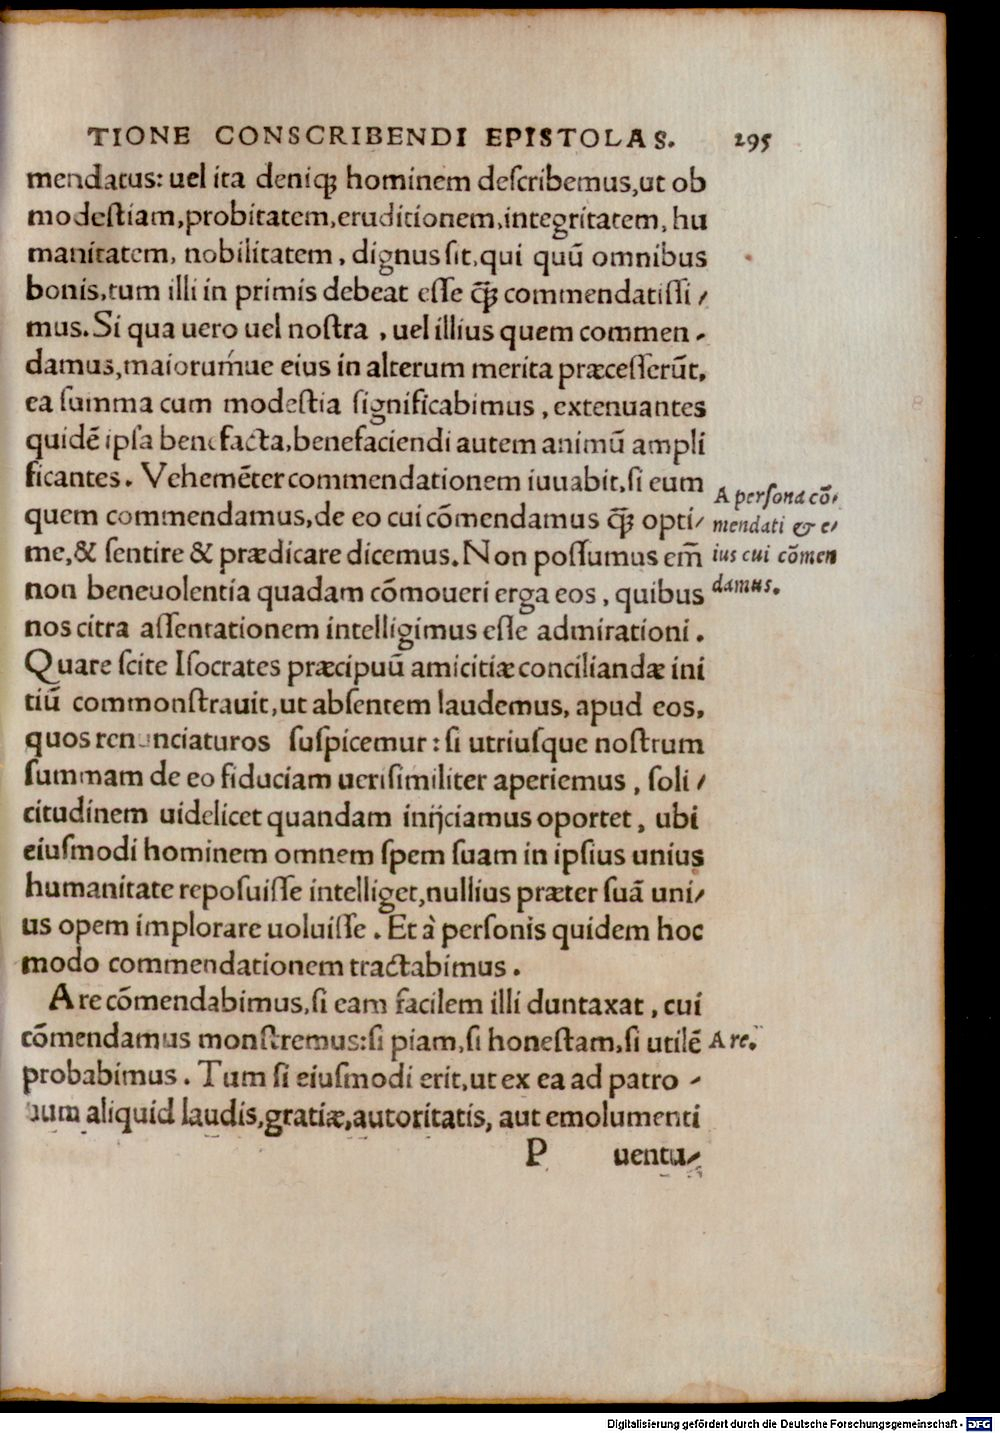 TIONE CONSCRIBENDI EPISTOLAS. 295
mendatus: uel ita deniqꝫ hominem deſcribemus,ut ob
modeſtiam,probitatem,eruditionem,integritatem, hu
manitatem, nobilitatem, dignus ſit,qui quū omnibus
bonis,tum illi in primis debeat eſſe q̄ꝫ commendatiſſi/
mus. Si qua uero uel noſtra, uel illius quem commen-
damus,maioruḿue eius in alterum merita præceſſerūt,
ea ſumma cum modeſtia ſignificabimus, extenuantes
quidē ipſa benefacta,benefaciendi autem animū ampli
ficantes. Vehemēter commendationem iuuabit,ſi eum
quem commendamus,de eo cui cōmendamus q̄ꝫ opti/
me,& ſentire & prædicare dicemus. Non poſſumus em̄
non beneuolentia quadam cōmoueri erga eos, quibus
nos citra aſſentationem intelligimus eſſe admirationi.
Quare ſcite Iſocrates præcipuū amicitiæ conciliandæ ini
tiū commonſtrauit,ut abſentem laudemus, apud eos,
quos renunciaturos ſuſpicemur: ſi utriuſque noſtrum
ſummam de eo fiduciam ueriſimiliter aperiemus, ſoli/
citudinem uidelicet quandam inijciamus oportet, ubi
eiuſmodi hominem omnem ſpem ſuam in ipſius unius
humanitate repoſuiſſe intelliget,nullius præter ſuā uni/
us opem implorare uoluiſſe. Et à perſonis quidem hoc
modo commendationem tractabimus.
A re cōmendabimus,ſi eam facilem illi duntaxat, cui
cōmendamus monſtremus:ſi piam,ſi honeſtam,ſi utilē
probabimus. Tum ſi eiuſmodi erit,ut ex ea ad patro-
num aliquid laudis,gratiæ,autoritatis, aut emolumenti
P uentu/
A perſona cō/
mendati & e/
ius cui cōmen
damus.
A re.
Digitalisierung gefördert durch die Deutsche Forschungsgemeinschaft - DFG